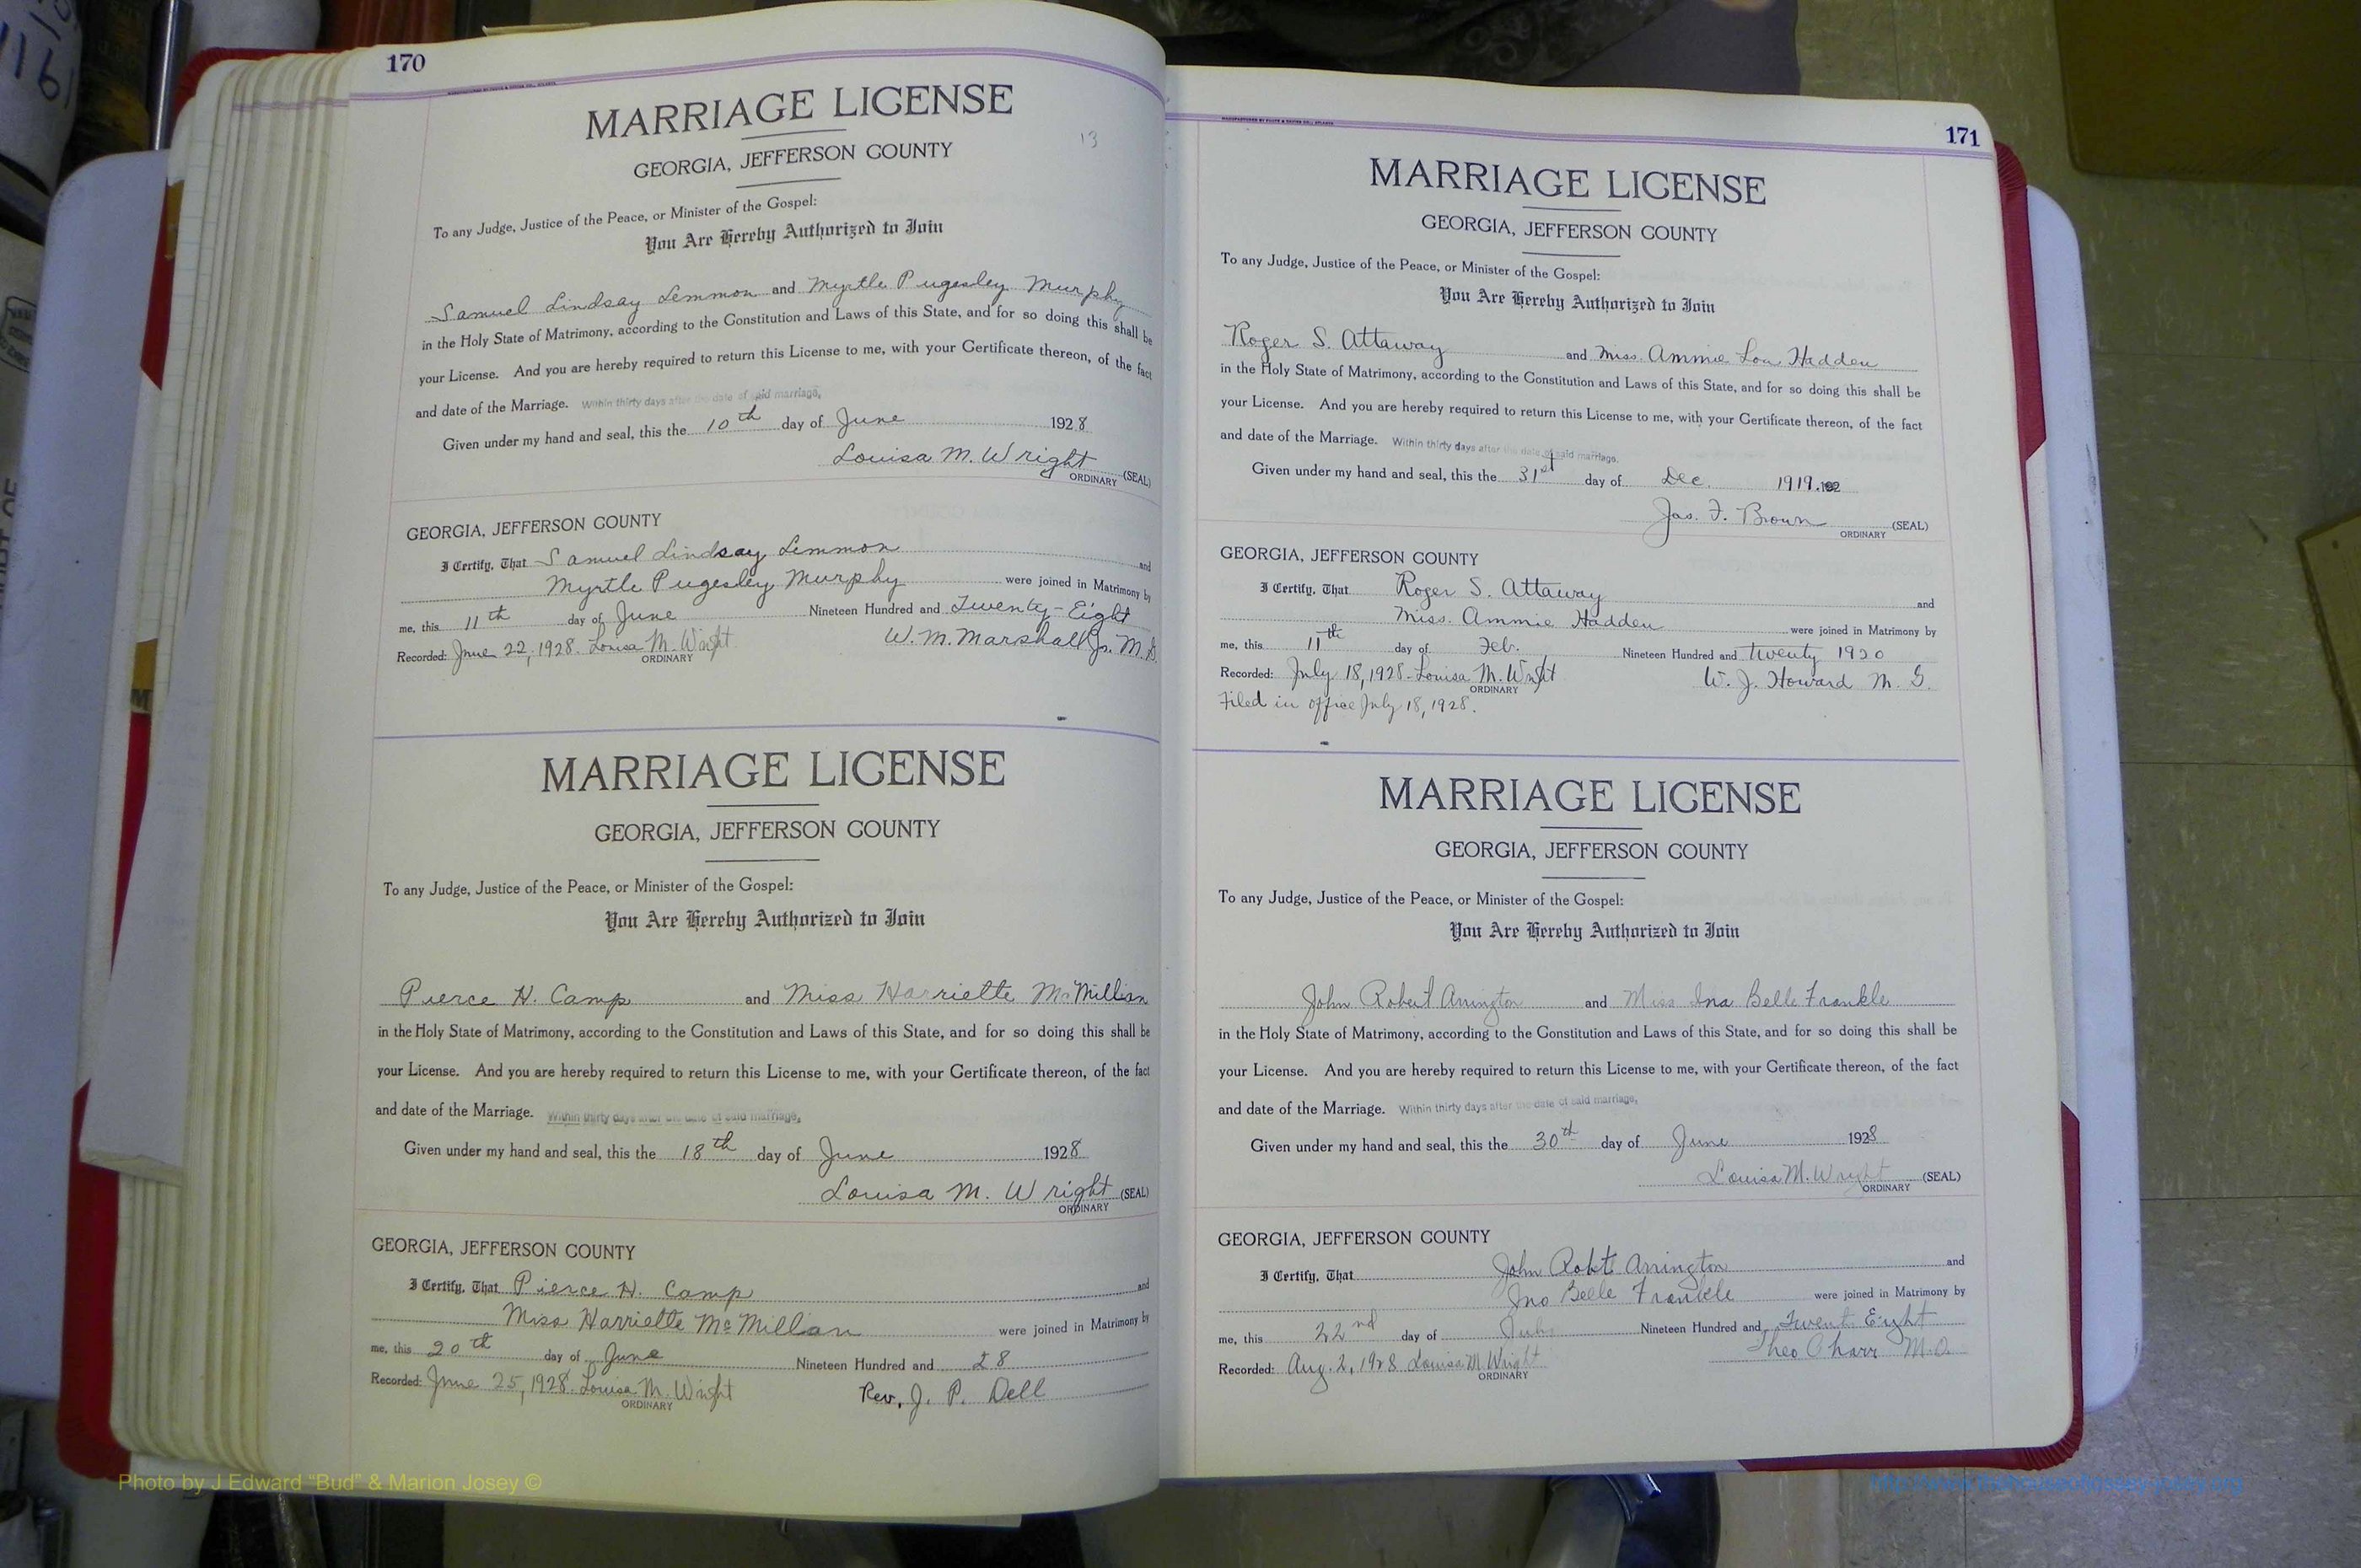 170
MARRIAGE LICENSE
13
GEORGIA, JEFFERSON COUNTY
To any Judge, Justice of the Peace, or Minister of the Gospel:
You Are Hereby Authorized to Join
Samuel Lindsay Lemmon and Myrtle Pugesley Murphy
in the Holy State of Matrimony, according to the Constitution and Laws of this State, and for so doing this shall be
your License. And you are hereby required to return this License to me, with your Certificate thereon, of the fact
and date of the Marriage. Within thirty days after the date of said marriage,
Given under my hand and seal, this the 10th day of June 1928
Louisa M. Wright (SEAL)
ORDINARY
GEORGIA, JEFFERSON COUNTY
I Certify, That Samuel Lindsay Lemmon and
Myrtle Pugesley Murphy were joined in Matrimony by
me, this 11th day of June Nineteen Hundred and Twenty-Eight
Recorded: June 22, 1928. Louisa M. Wright W. M. Marshall Jr. M.G.
ORDINARY
MARRIAGE LICENSE
GEORGIA, JEFFERSON COUNTY
To any Judge, Justice of the Peace, or Minister of the Gospel:
You Are Hereby Authorized to Join
Pierce H. Camp and Miss Harriette McMillian
in the Holy State of Matrimony, according to the Constitution and Laws of this State, and for so doing this shall be
your License. And you are hereby required to return this License to me, with your Certificate thereon, of the fact
and date of the Marriage. Within thirty days after the date of said marriage,
Given under my hand and seal, this the 18th day of June 1928
Louisa M. Wright (SEAL)
ORDINARY
GEORGIA, JEFFERSON COUNTY
I Certify, That Pierce H. Camp and
Miss Harriette McMillan were joined in Matrimony by
me, this 20th day of June Nineteen Hundred and 28
Recorded: June 25, 1928. Louisa M. Wright Rev. J. P. Dell
ORDINARY
171
MARRIAGE LICENSE
GEORGIA, JEFFERSON COUNTY
To any Judge, Justice of the Peace, or Minister of the Gospel:
You Are Hereby Authorized to Join
Roger S. Attaway and Miss. Ammie Lou Hadden
in the Holy State of Matrimony, according to the Constitution and Laws of this State, and for so doing this shall be
your License. And you are hereby required to return this License to me, with your Certificate thereon, of the fact
and date of the Marriage. Within thirty days after the date of said marriage,
Given under my hand and seal, this the 31st day of Dec. 1919. 192
Jas. F. Brown (SEAL)
ORDINARY
GEORGIA, JEFFERSON COUNTY
I Certify, That Roger S. Attaway and
Miss. Ammie Hadden were joined in Matrimony by
me, this 11th day of Feb. Nineteen Hundred and Twenty 1920
Recorded: July 18, 1928. Louisa M. Wright W. J. Howard M. G.
ORDINARY
Filed in office July 18, 1928.
MARRIAGE LICENSE
GEORGIA, JEFFERSON COUNTY
To any Judge, Justice of the Peace, or Minister of the Gospel:
You Are Hereby Authorized to Join
John Robert Arrington and Miss Ina Belle Frankle
in the Holy State of Matrimony, according to the Constitution and Laws of this State, and for so doing this shall be
your License. And you are hereby required to return this License to me, with your Certificate thereon, of the fact
and date of the Marriage. Within thirty days after the date of said marriage,
Given under my hand and seal, this the 30th day of June 1928
Louisa M. Wright (SEAL)
ORDINARY
GEORGIA, JEFFERSON COUNTY
I Certify, That John Robt Arrington and
Ina Belle Frankle were joined in Matrimony by
me, this 22nd day of Nineteen Hundred and Twenty Eight
Recorded: Aug. 2, 1928 Louisa M. Wright Theo Pharr
ORDINARY
Photo by J Edward "Bud" & Marion Josey ©